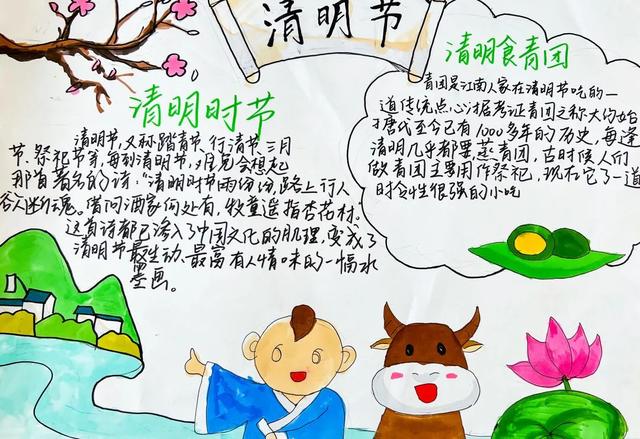 清明节
清明时节
清明节,又称踏青节、行清节、三月
节、祭祀节等,每到清明节,
那首著名的诗:"清明时节雨纷纷,路上行人
欲断魂。借问酒家何处有,牧童遥指杏花村。
这首诗都已渗入了中国文化的肌理,变成了
清明节最生动、最富有人情味的一幅水
墨画。
清明食青团
青团是江南人家在清明节吃的一
道传统点心,据考证青团之称大约始
于唐代至今已有1000多年的历史,每逢
清明几乎都要蒸青团,古时候人们
做青团主要用作祭祀,现在它了一道
时令性很强的小吃